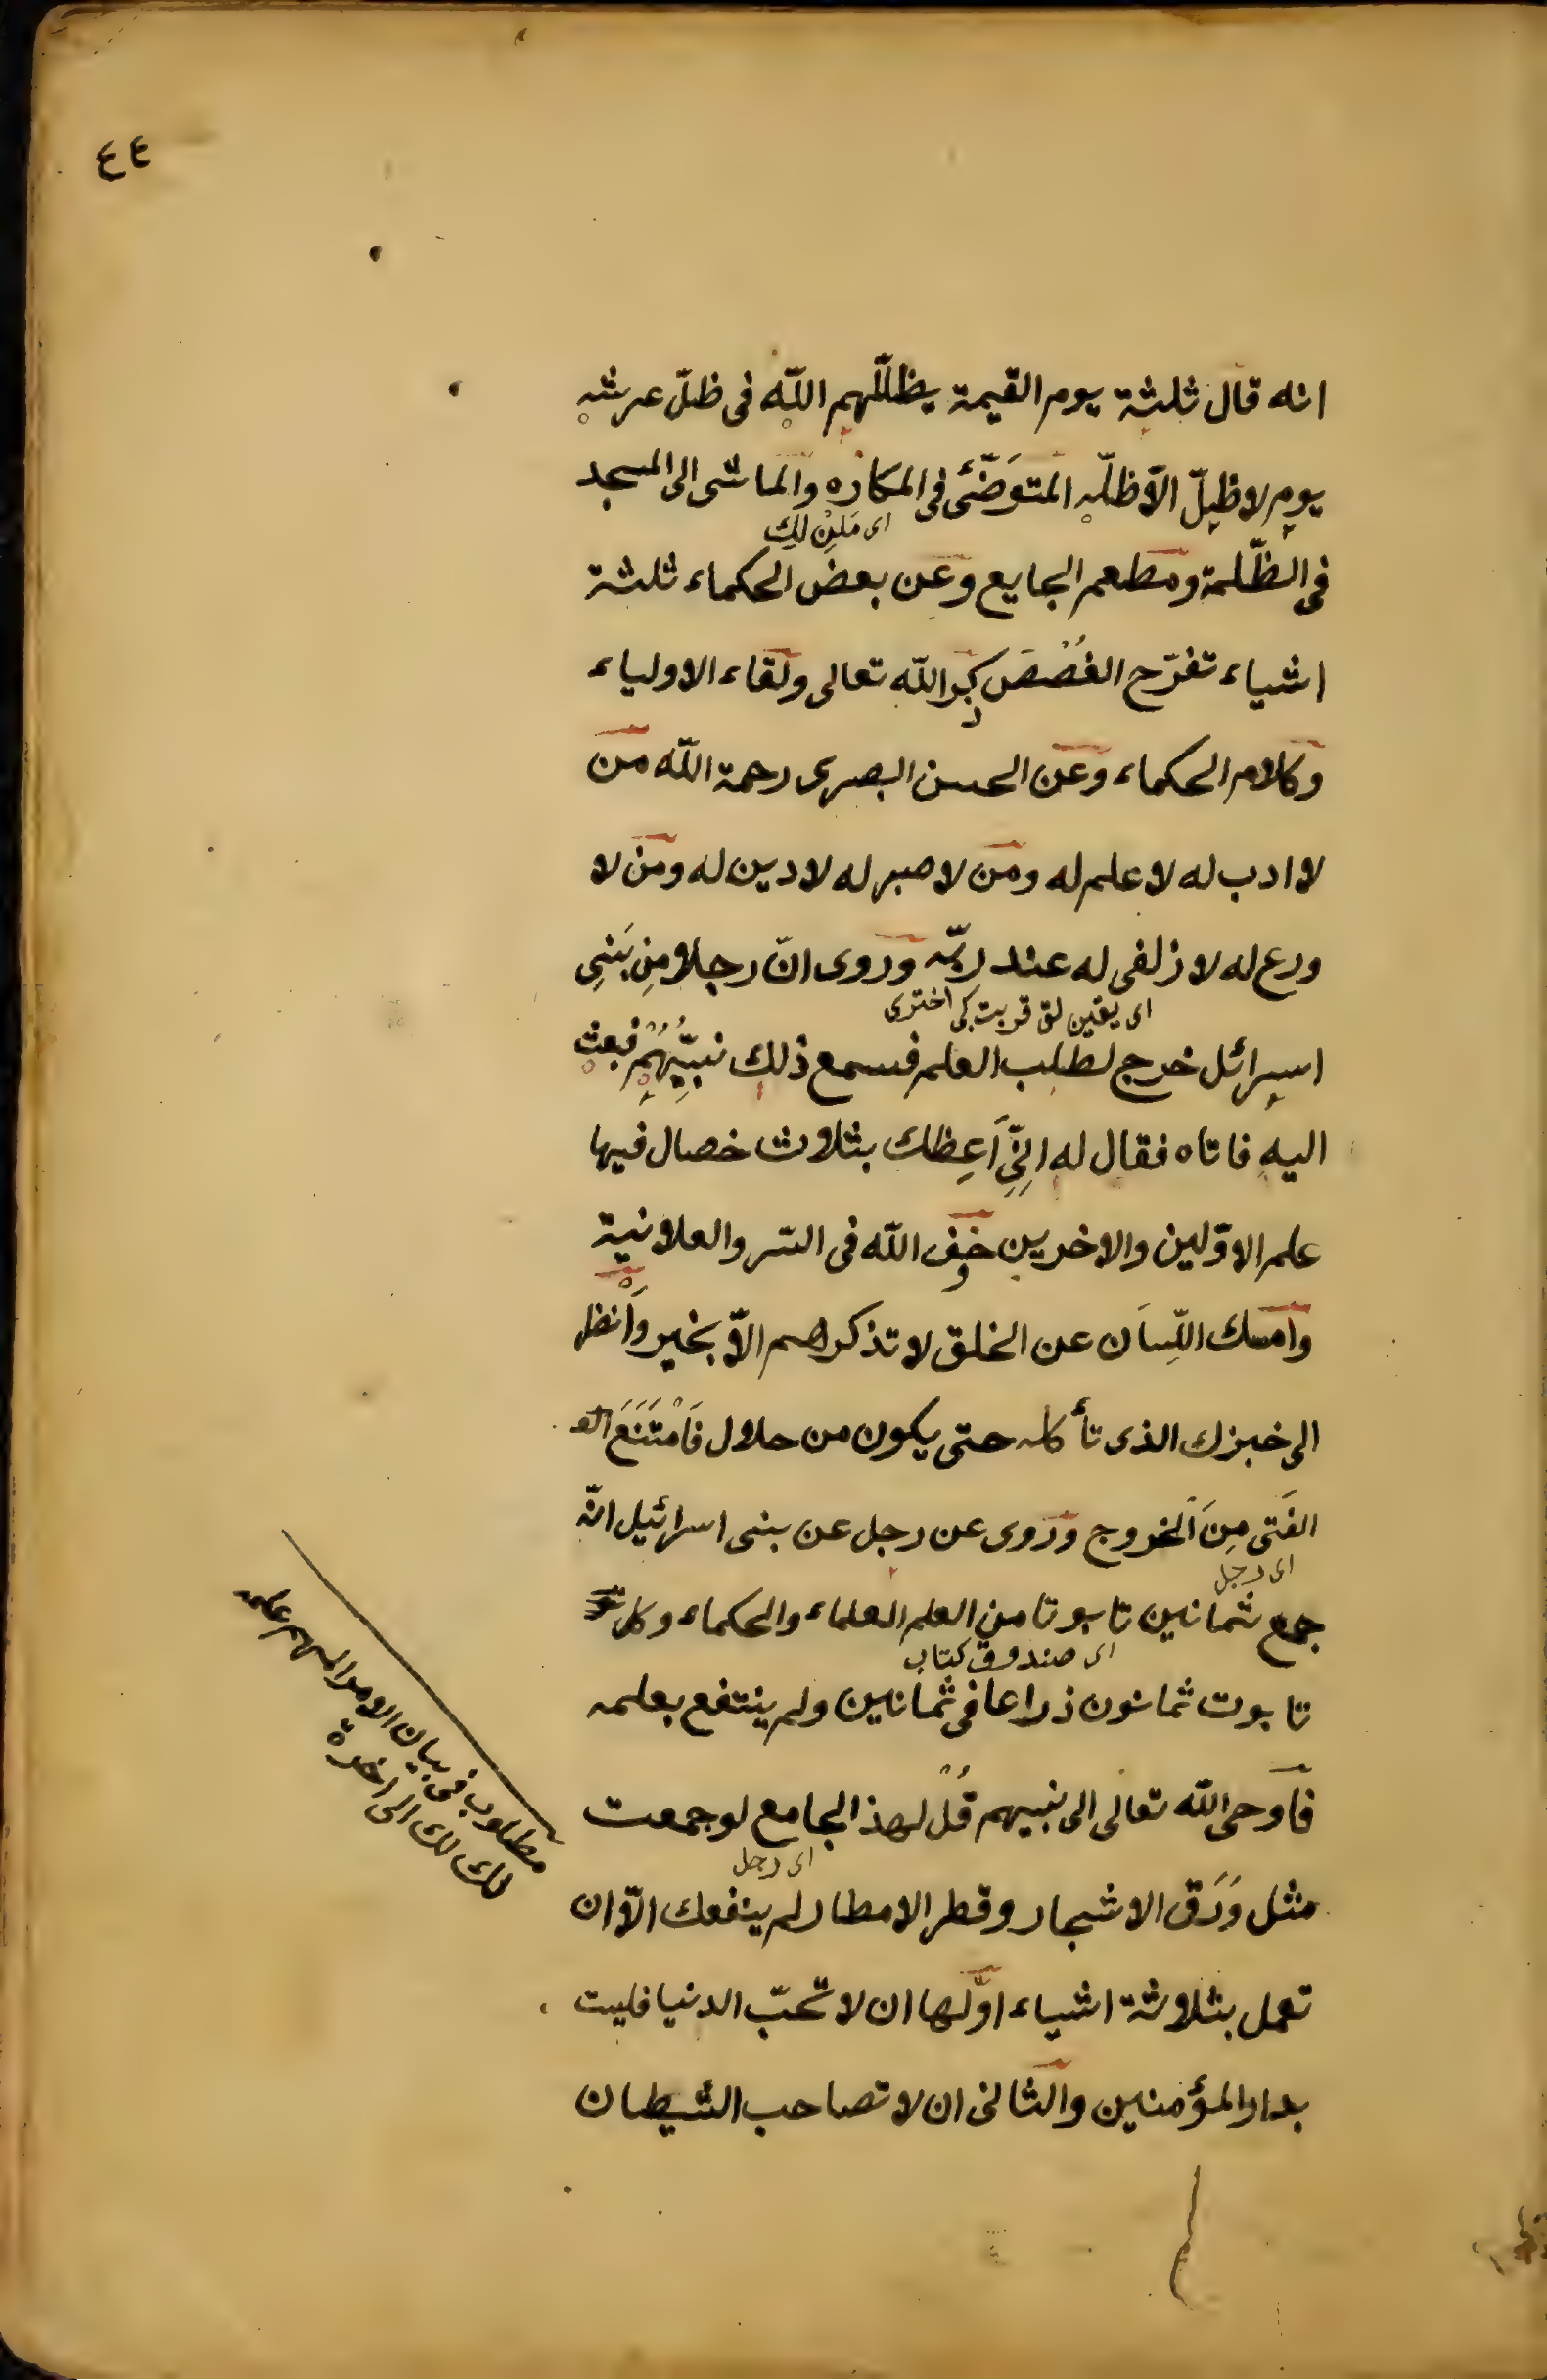 ٤٤
انه قال ثلثة يوم القيمة يظلّلهم اللّه فى ظلّ عرشه
يوم لا ظلّ الّا ظلّه المتوَضّئ فى المكاره والماشى الى المسجد
فى الظّلمة ومطعم الجايع وعن بعض الحكماء ثلثة
اشياء تفرّح الغُصْصَ ذكر اللّه تعالى ولقاء الاولياء
وكلام الحكماء وعن الحسن البصرى رحمة اللّه من
لا ادب له لا علم له ومن لا صبر له لا دين له ومن لا
ورع له لا زلفى له عند ربّه وروى انّ رجلا مِن بَنِى
اى يقين لق قربت
اسرائل خرج لطلب العلم فسمع ذلك نبيّهُم فبعث
اليه فاتاه فقال له اِنِّى اَعِظك بثلاث خصال فيها
علم الاوّلين والاخرين خف اللّه فى السّر والعلانية
وامسك اللّسَان عن الخلق لا تذكر هم الّا بخير وَانظر
الى خبزك الذى تأكله حتى يكون من حلال فَامْتَنَعَ
الفَتى مِنَ الخروج وروى عن رجل عن بنى اسرائيل انّه
اى رجل
جمع ثمانين تابوتا من العلم العلماء والحكماء وكل
اى صندوق كتاب
تابوت ثمانون ذراعا فى ثمانين ولم ينتفع بعلمه
فاَوحى اللّه تعالى الى نبيهم قُلْ لهذ الجامع لو جمعت
اى رجل
مثل وَرَق الاشجار وقطر الامطار لم ينفعك الّا ان
تعمل بثلاثة اشياء اوّلها ان لا تحبّ الدنيا فليست
بدار المؤمنين والثانى ان لا تصاحب الشيطان
مطلوب فى بيان الامر المهم
لك الى اخرة